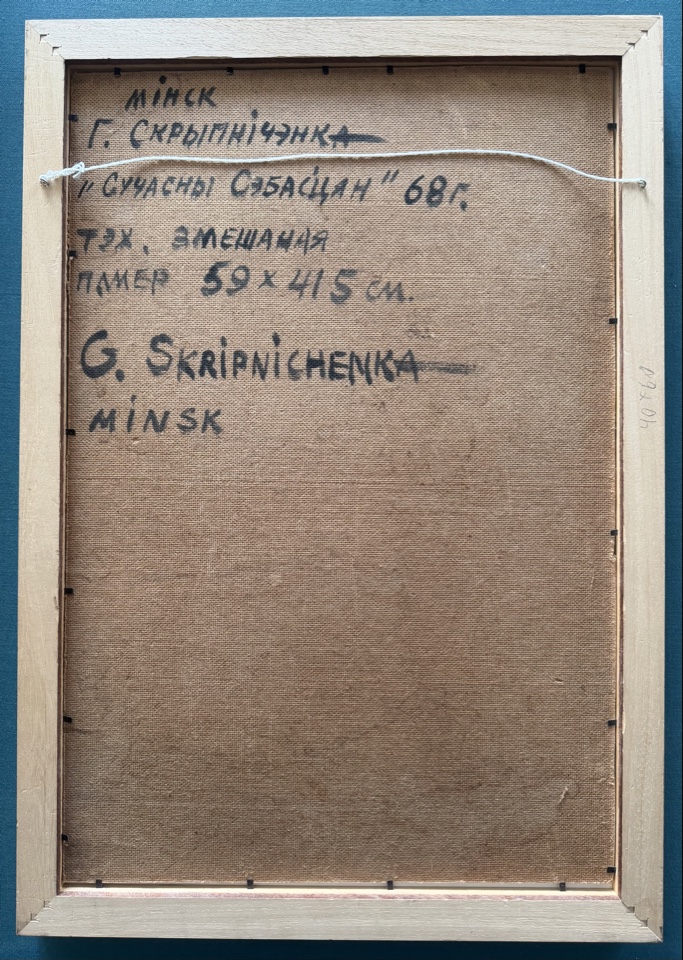 МІНСК
Г. СКРЫПНІЧЭНКА
„СУЧАСНЫ СЭБАСЦЯН" 68г.
ТЭХ. ЗМЕШАНАЯ
ПАМЕР 59 × 415 см.
G. SKRIPNICHENKA
MINSK